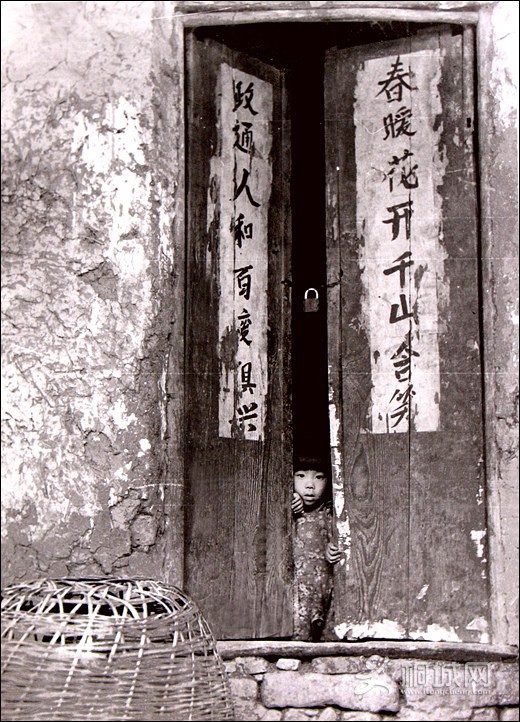 春暖花开千山含笑
政通人和百废俱兴
桐城网
www.itongcheng.com